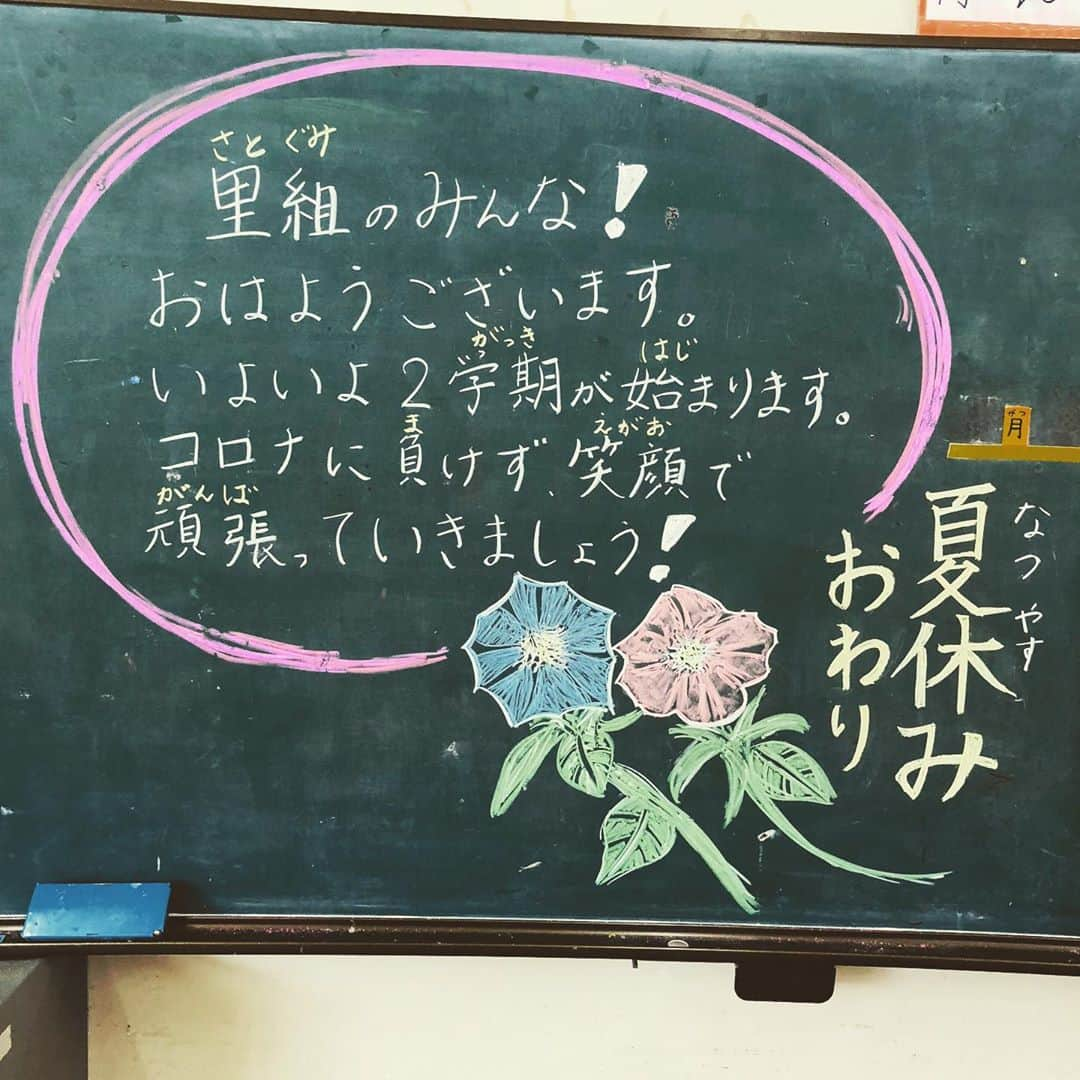 さと ぐみ
里組のみんな!
おはようございます。
がっき はじ
いよいよ2学期が始まります。
ま えがお
コロナに負けず、笑顔で
がんば
頑張っていきましょう!
なつ やす
夏休み
おわり
がつ
月